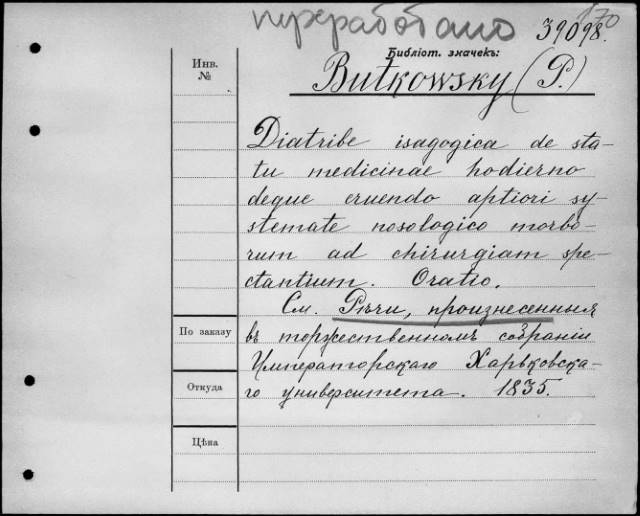 переработано
39098.
170
Библіот. значекъ:
Инв.
№
Butkowsky (P.)
Diatribe isagogica de sta-
tu medicinae hodierno
deque eruendo aptiori sy-
stemate nosologico morbo-
rum ad chirurgiam spe-
ctantium. Oratio.
См. Рѣчи, произнесенныя
По заказу
въ торжественномъ собраніи
Императорскаго Харьковска-
Откуда
го университета. 1835.
Цѣна